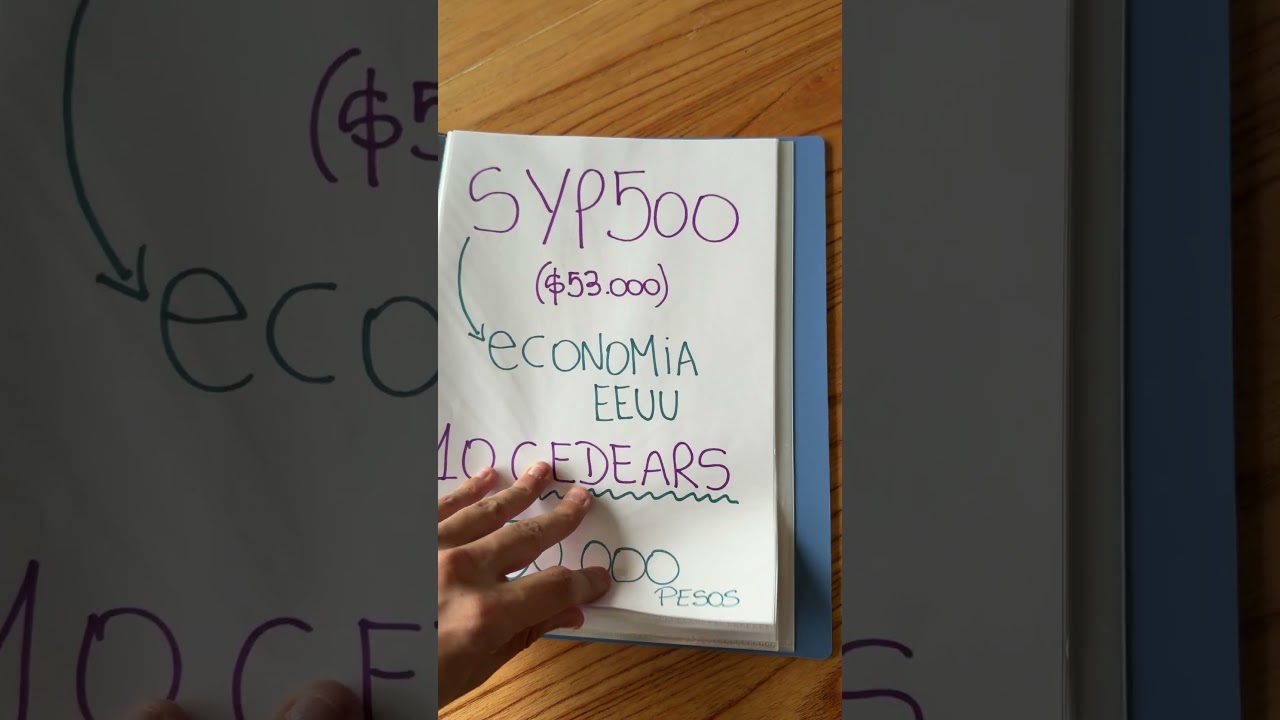 SYP500
($53.000)
eCONOMiA
EEUU
10 CEDEARS
PESOS